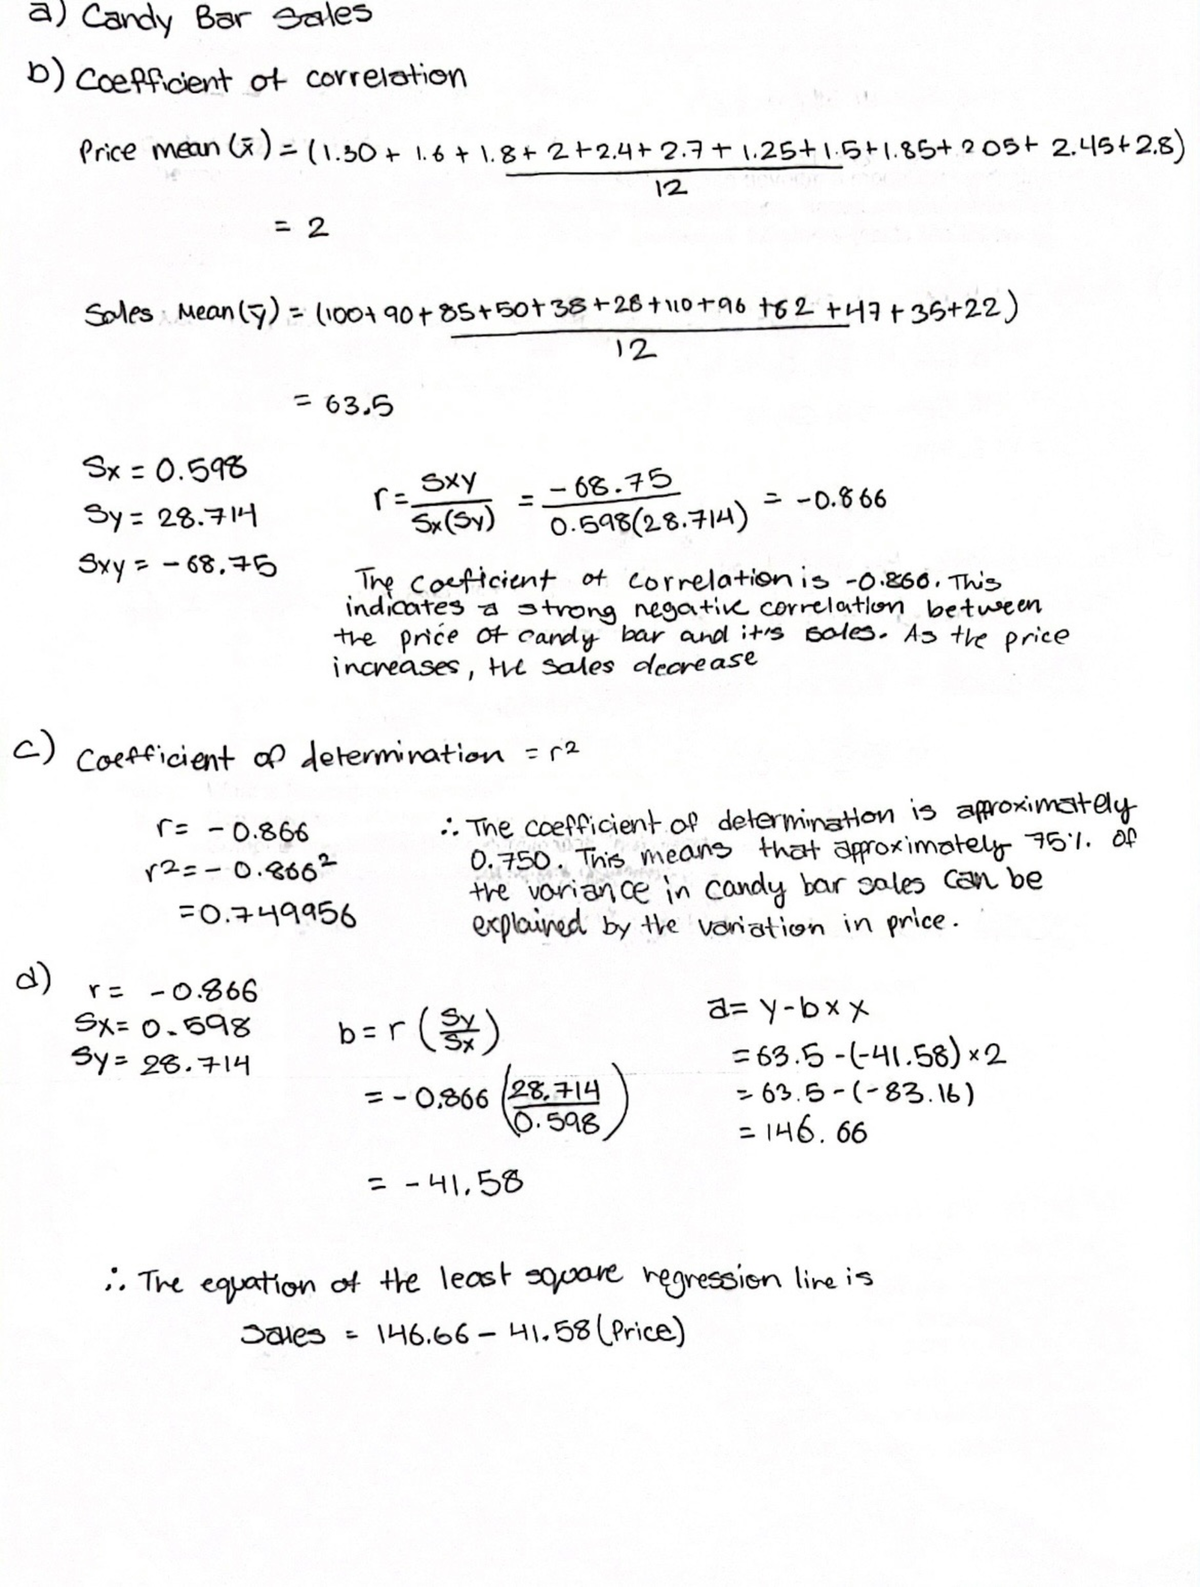 a) Candy Bar Sales
b) Coefficient of correlation
Price mean (x̄) = (1.30 + 1.6 + 1.8 + 2 + 2.4 + 2.7 + 1.25 + 1.5 + 1.85 + 205 + 2.45 + 2.8)
12
= 2
Sales Mean (ȳ) = (100 + 90 + 85 + 50 + 38 + 28 + 110 + 96 + 62 + 47 + 35 + 22)
12
= 63.5
Sx = 0.598
Sy = 28.714
Sxy = -68.75
r = Sxy / Sx(Sy) = -68.75 / 0.598(28.714) = -0.866
The coefficient of correlation is -0.866. This
indicates a strong negative correlation between
the price of candy bar and it's sales. As the price
increases, the sales decrease
c) Coefficient of determination = r2
r = -0.866
r2 = -0.866²
= 0.749956
∴ The coefficient of determination is approximately
0.750. This means that approximately 75%. of
the variance in candy bar sales can be
explained by the variation in price.
d)
r = -0.866
Sx = 0.598
Sy = 28.714
b = r (Sy / Sx)
= -0.866 (28.714 / 0.598)
= -41.58
a = y - b x x
= 63.5 - (-41.58) × 2
= 63.5 - (-83.16)
= 146.66
∴ The equation of the least square regression line is
Sales = 146.66 - 41.58 (Price)